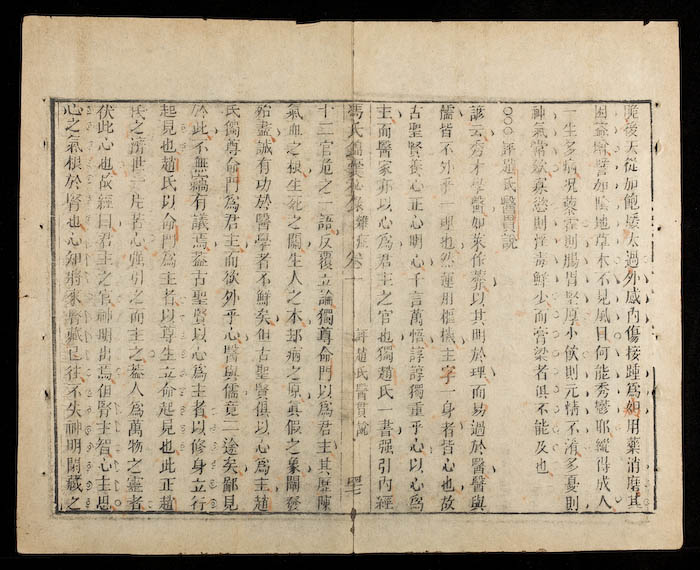 晚後天從加飽煖太過外感內傷接踵爲如用藥消磨其
困益增譬如陰地草木不見風日何能秀鬱耶縱得成人
一生多病況藜藿則腸胃堅厚小飲則元情不淆多憂則
神氣常歛寡慾則怪毒鮮少而膏梁者俱不能及也
○○評趙氏醫貫說
諺云秀才學醫如菜作虀以其明於理而易通於醫醫與
儒皆不外乎一理也然運用樞機主宰一身者皆心也故
古聖賢養心正心明心千言萬悟諄諄獨重乎心以心爲
主而醫家亦以心爲君主之官也獨趙氏一書强引內經
馮氏錦囊秘錄雜症卷一 評趙氏醫貫說
十二官危之一語反覆立論獨尊命門以爲君主其歷陳
氣血之根生死之關生人之本却病之原眞假之象闡發
殆盡誠有功於醫學者不鮮矣但古聖賢俱以心爲主趙
氏獨尊命門爲君主而欲外乎心醫與儒竟二途矣鄙見
於此不無竊有議焉蓋古聖賢以心爲主者以修身立行
起見也趙氏以命門爲主者以尊生立命起見也此正趙
氏之濟世一片苦心強引之而主之蓋人爲萬物之靈者
伏此心也故經曰君主之官神明出焉但腎主智心主思
心之氣根於腎也心如將家腎藏民往不失神明閑藏之